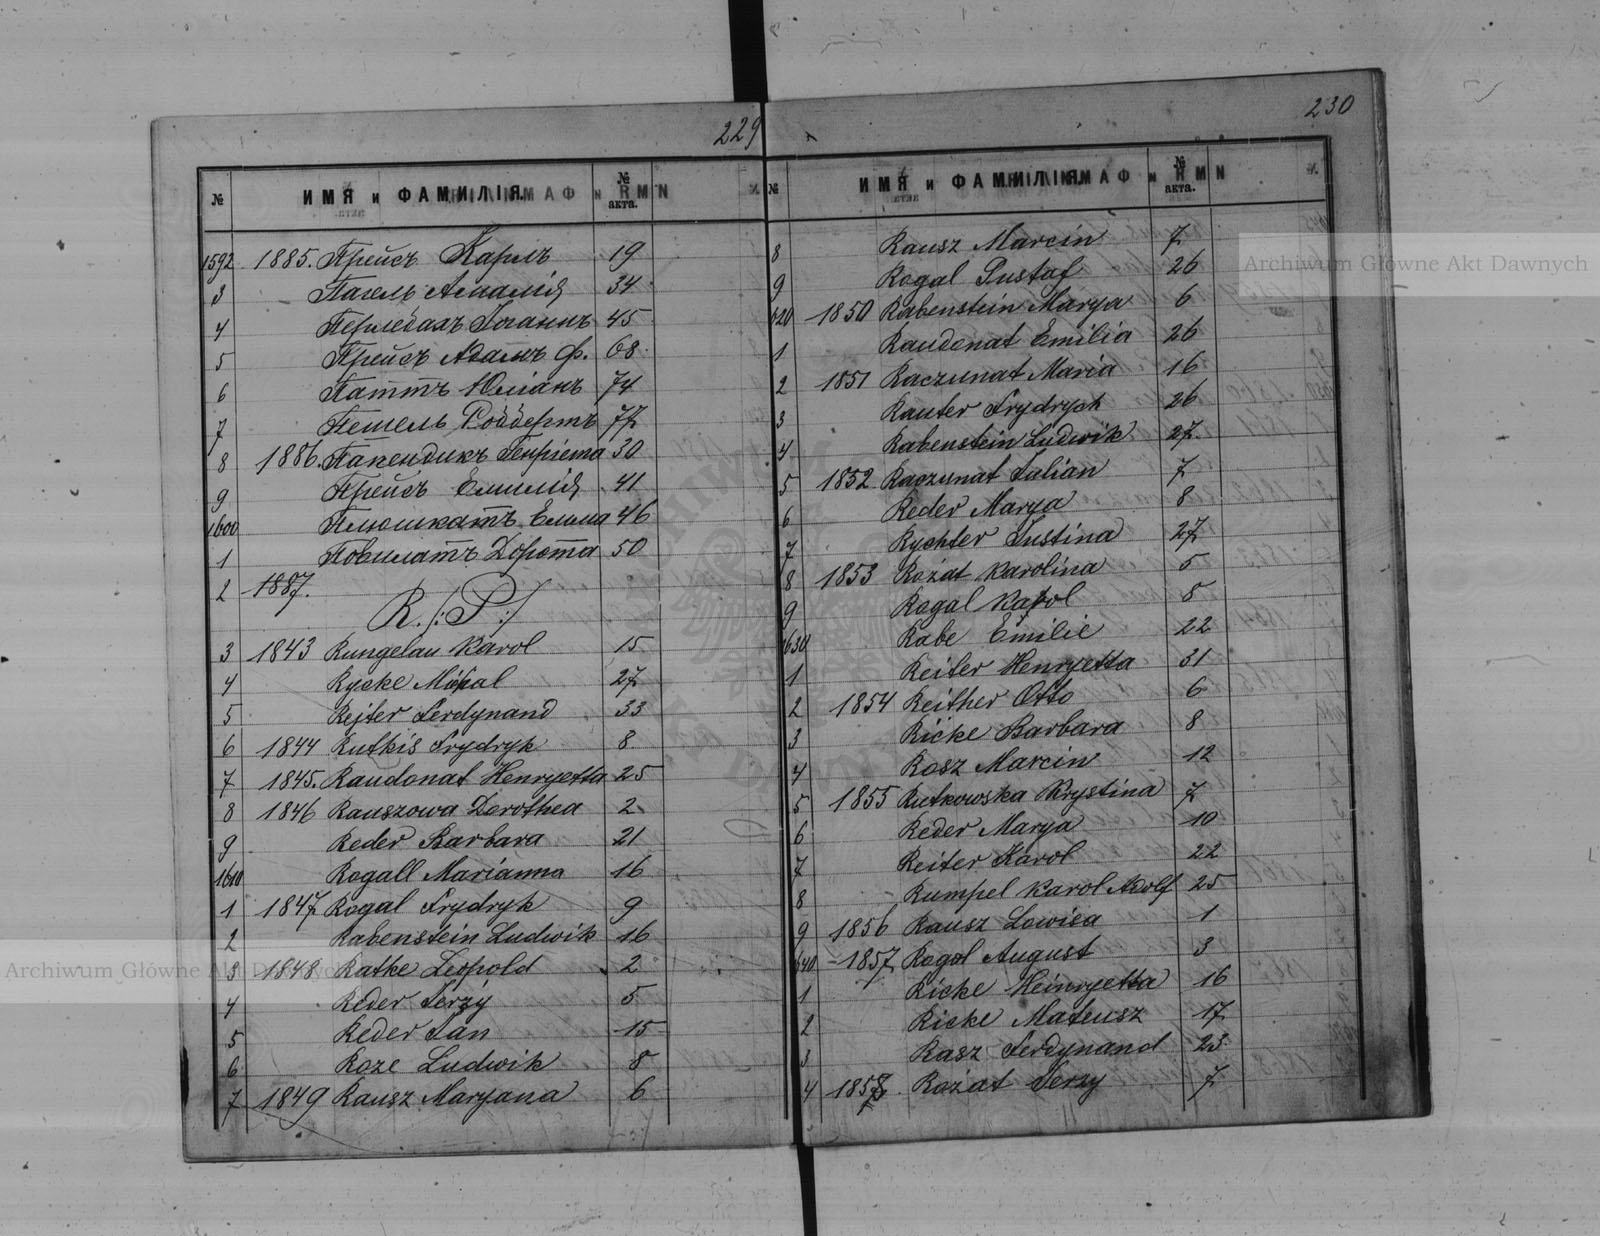 229
№ ИМЯ и ФАМИЛІЯ. № акта.
1592 1885. Прейсъ Карлъ 19
3 Пагель Амалія 34
4 Перлебахъ Іоганнъ 45
5 Прейсъ Адамъ Ф. 68
6 Паттъ Юліанъ 74
7 Пешель Роббертъ 77
8 1886. Папендикъ Генріета 30
9 Прейсъ Емилія 41
1600 Плюшкатъ 46
1 Повилатъ Дорота 50
2 1887.
R. /:P:/
3 1843 Rungelau Karol 15
4 Rycke 27
5 Rejter Ferdynand 33
6 1844 Rutkis Frydryk 8
7 1845. Raudonat Henryetta 25
8 1846 Rauszowa Dorothea 2
9 Reder Barbara 21
1610 Rogall Marianna 16
1 1847 Rogal Frydryk 9
2 Rabenstein Ludwik 16
3 1848 Ratke Leopold 2
4 Reder Jerzy 5
5 Reder Jan 15
6 Roze Ludwik 8
7 1849 Rausz Maryana 6
230
№ ИМЯ и ФАМИЛІЯ. № акта.
8 Rausz Marcin 7
9 Rogal Gustaf 26
620 1850 Rabenstein Marya 6
1 Raudonat Emilia 26
2 1851 Raczunat Maria 16
3 Rauter Frydrych 26
4 Rabenstein Ludwik 27
5 1852 Raczunat Julian 7
6 Reder Marya 8
7 Rychter Justina 27
8 1853 Rożat Karolina 5
9 Rogal Karol 8
1630 Rabe Emilie 22
1 Reiter Henryetta 31
2 1854 Reither Otto 6
3 Ricke Barbara 8
4 Rosz Marcin 12
5 1855 Rutkowska Krystina 7
6 Reder Marya 10
7 Reiter Karol 22
8 Rumpel Karol Adolf 25
9 1856 Rausz Lowiea 1
640 1857 Rogol August 3
1 Ricke Heinryetta 16
2 Ricke Mateusz 17
3 Rasz Ferdynand 23
4 1858 Rożat Jerzy 7
Archiwum Główne Akt Dawnych
Archiwum Główne Akt Dawnych